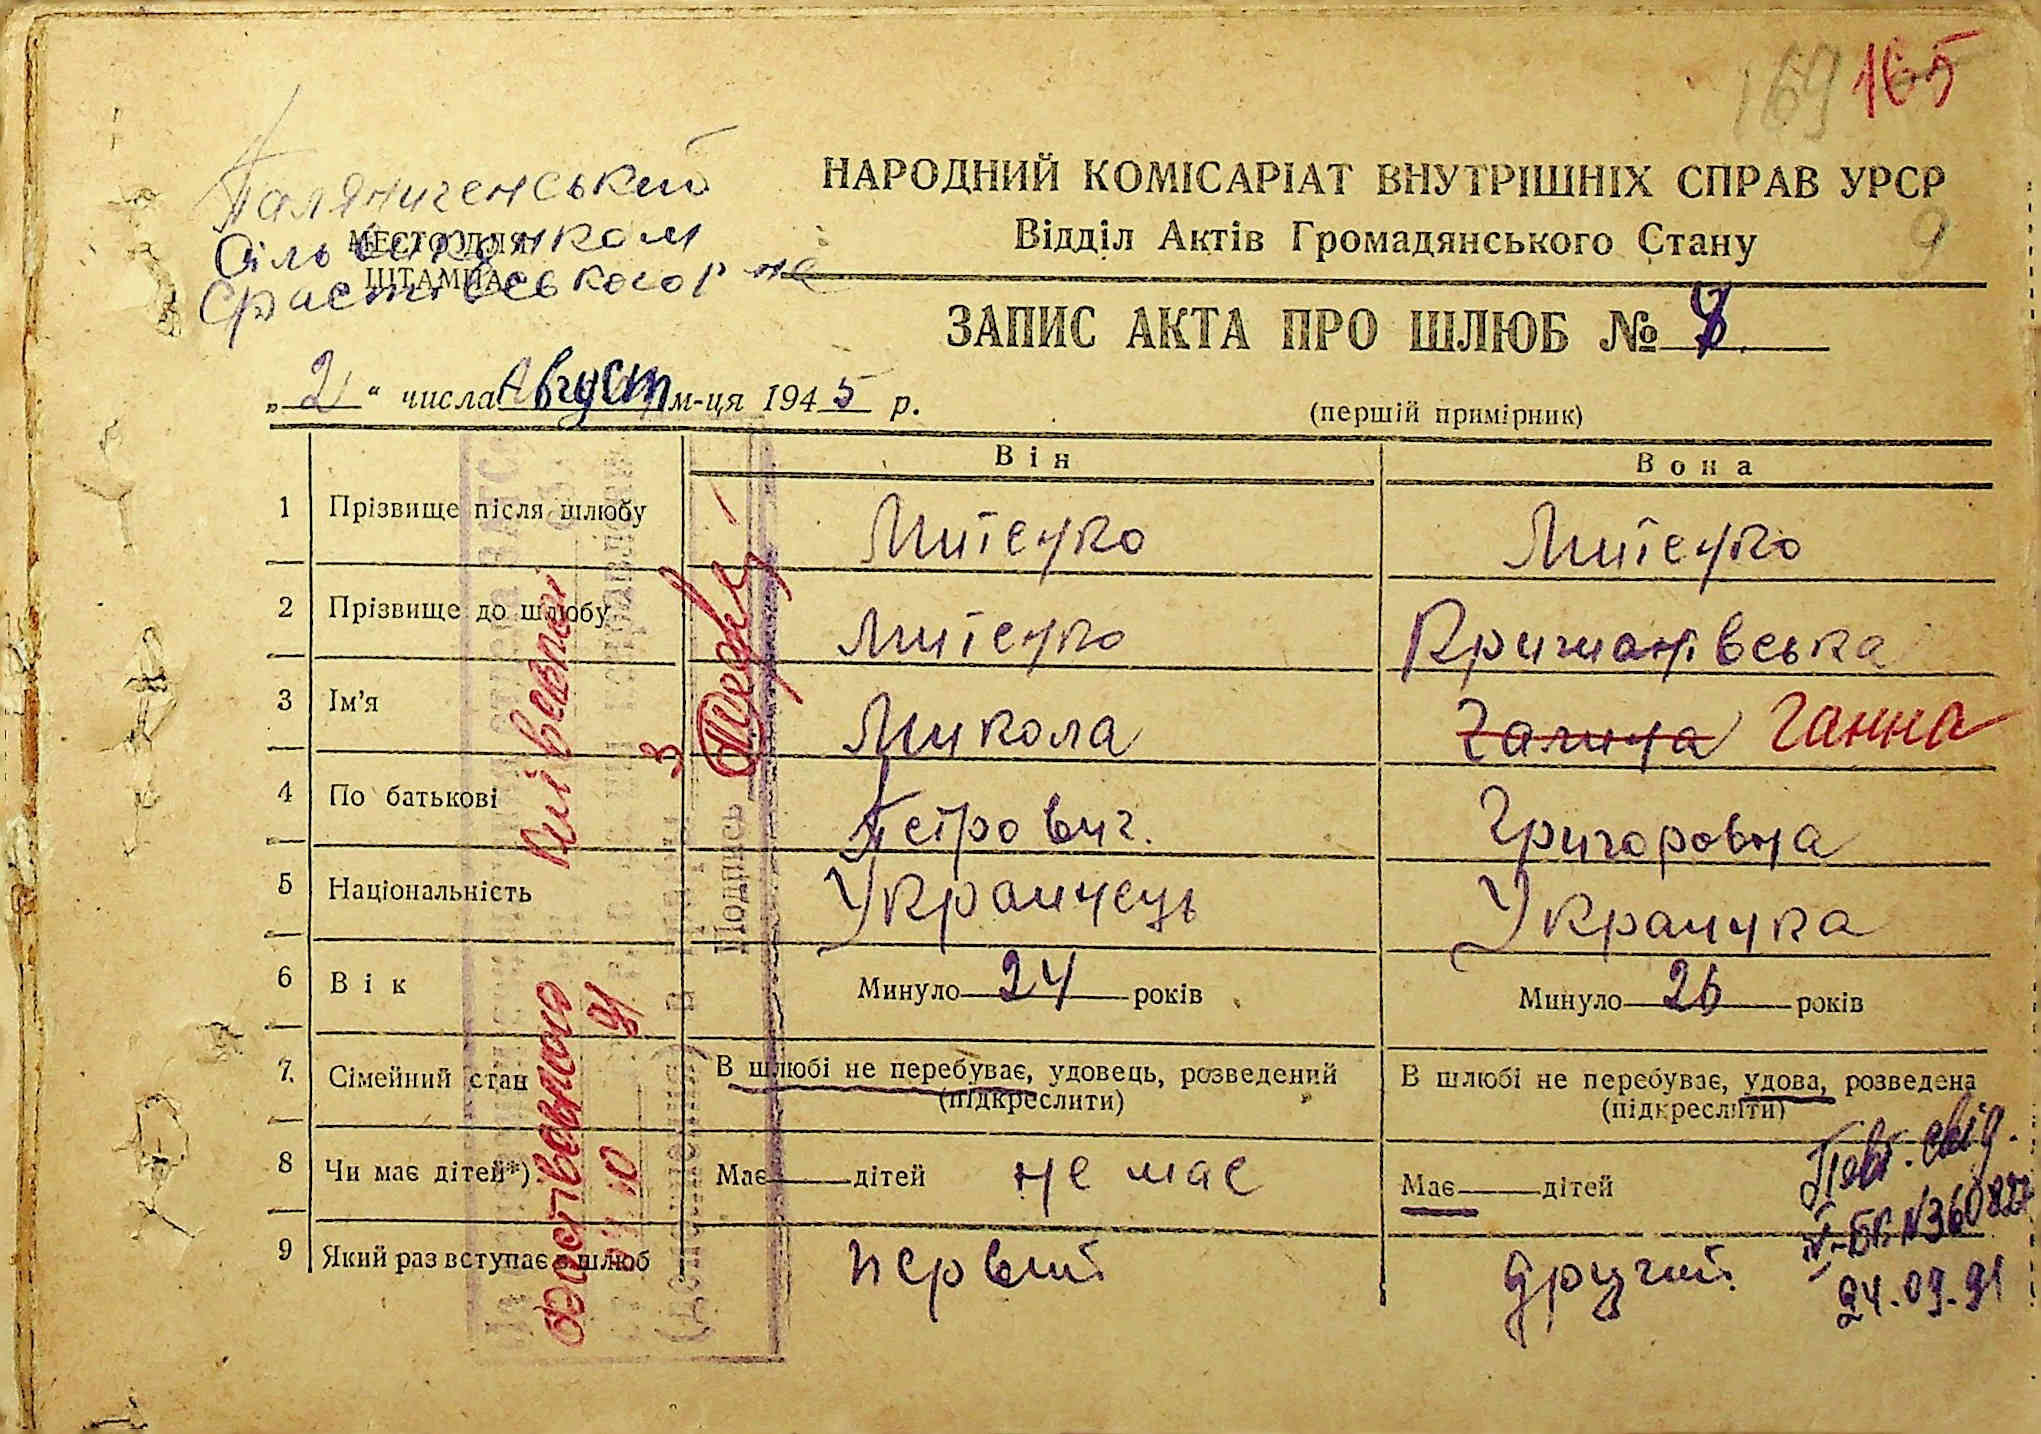 169 165
Паляниченський
Сільвиконком
МЕСТО ДЛЯ
ШТАМПА
Фастівського р-на
НАРОДНИЙ КОМІСАРІАТ ВНУТРІШНІХ СПРАВ УРСР
Відділ Актів Громадянського Стану
9
ЗАПИС АКТА ПРО ШЛЮБ №
„2“ числа Август м-ця 1945 р.
(першій примірник)
Він Вона
1 Прізвище після шлюбу Митенко Митенко
2 Прізвище до шлюбу Митенко Крижанівська
3 Ім'я Микола Галина Ганна
4 По батькові Петрович. Григоровна
5 Національність Українець Українка
6 Вік Минуло 24 років Минуло 26 років
7. Сімейний стан В шлюбі не перебуває, удовець, розведений В шлюбі не перебуває, удова, розведена
(підкреслити) (підкреслити)
8 Чи має дітей*) Має дітей не має Має дітей
9 Який раз вступає в шлюб первый другий
Повт. свід.
-БК №360827
24.09.91
Фастівського
Київської
Подпись